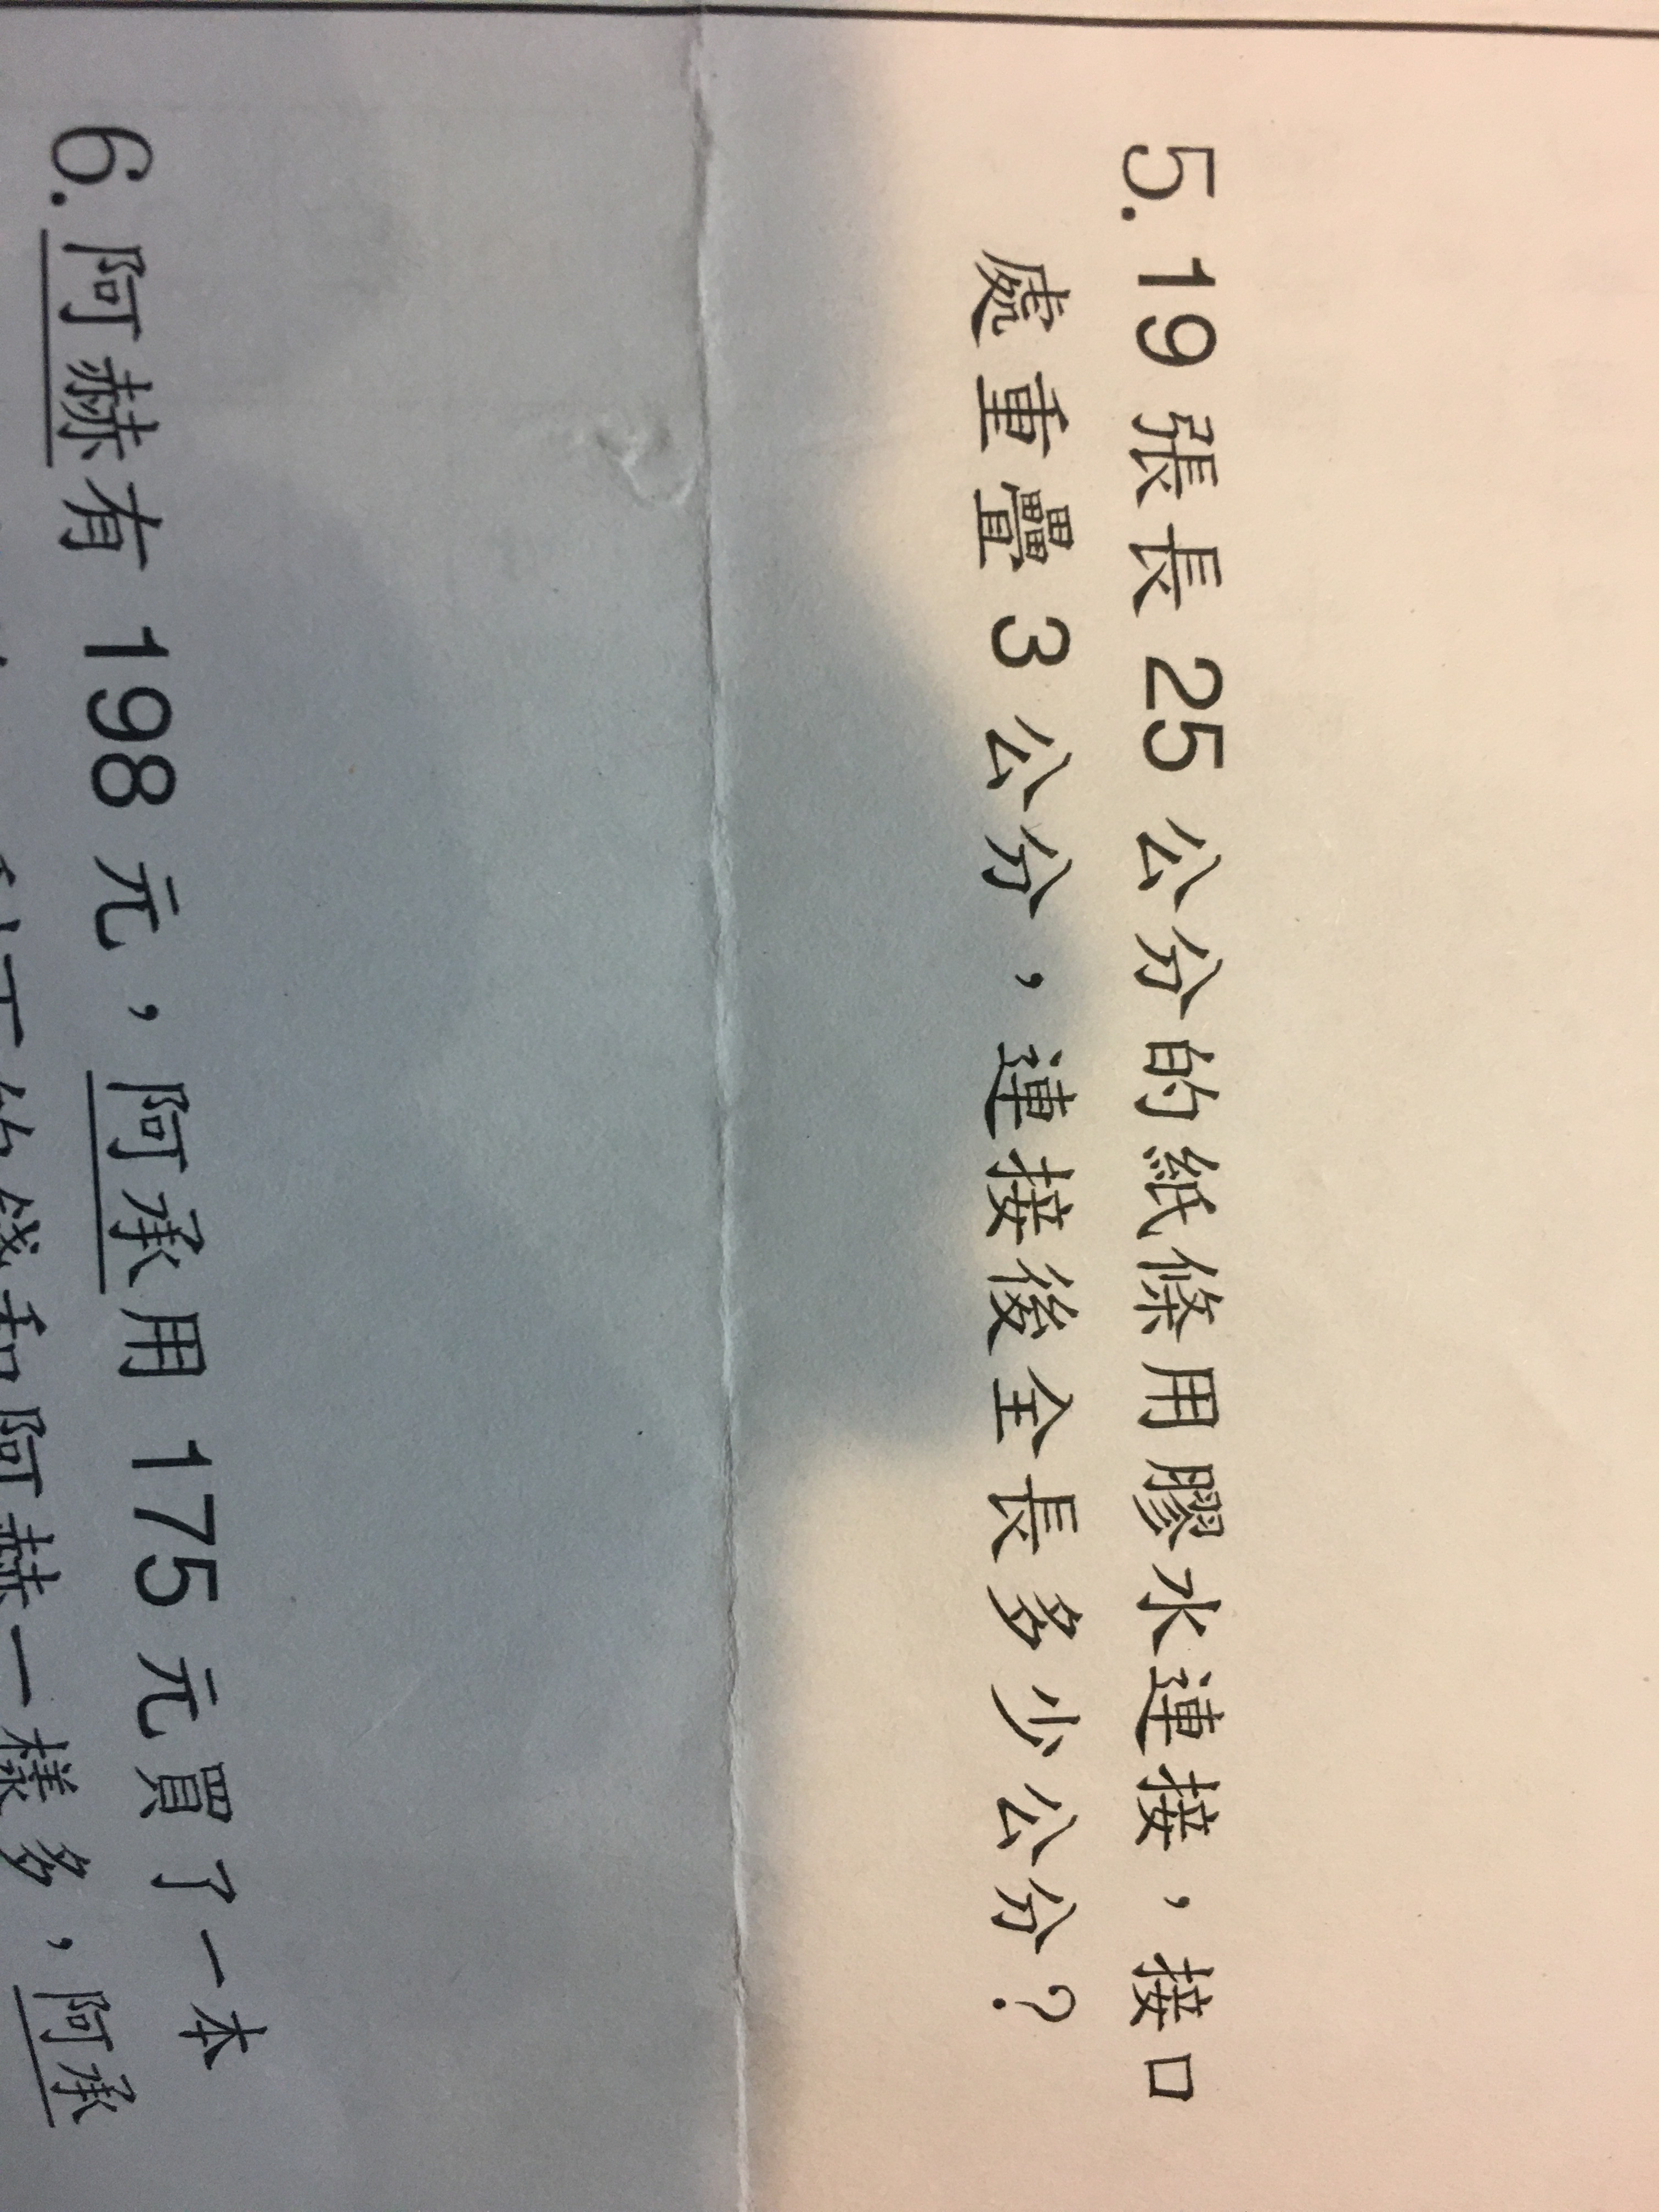 5. 19 張長 25 公分的紙條用膠水連接，接口
處重疊 3 公分，連接後全長多少公分？
6. 阿赫有 198 元，阿承用 175 元買了一本
和阿赫一樣多，阿承